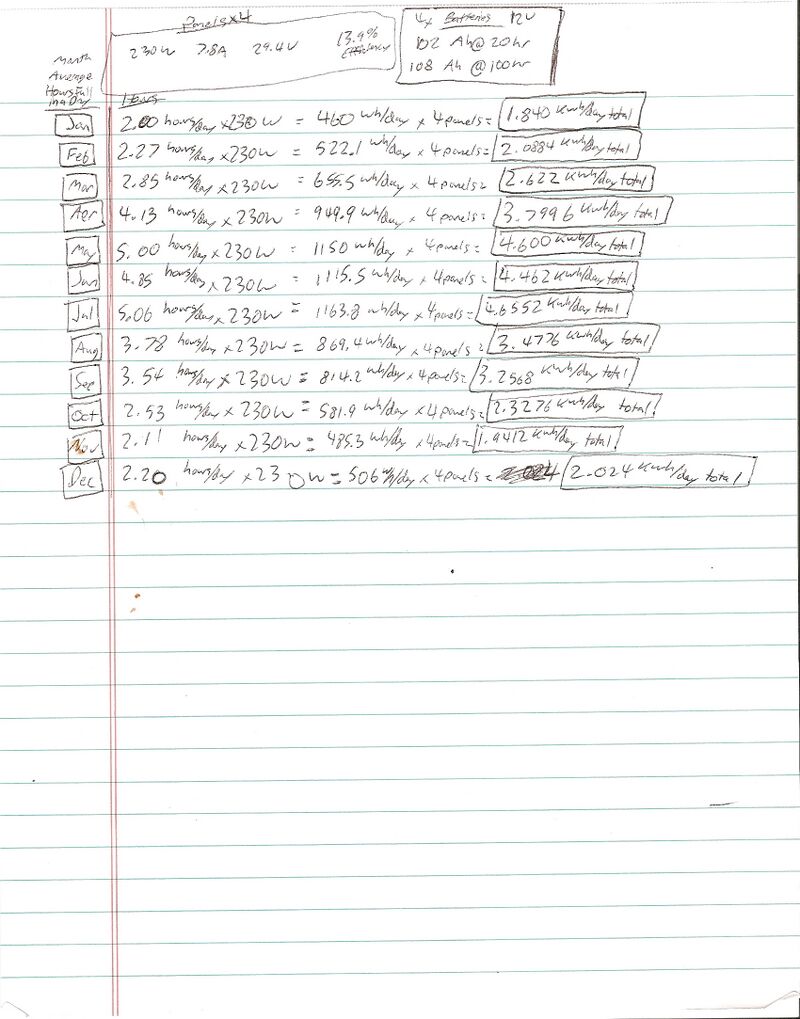 Panels x 4
230W 7.8A 29.4V 13.9% Efficiency
4x Batteries 12V
102 Ah@20hr
108 Ah @100hr
Month
Average
Hours Full
in a Day
Hours
Jan 2.00 hours/day x 230W = 460 Wh/day x 4 panels = 1.840 Kwh/day total
Feb 2.27 hours/day x 230W = 522.1 Wh/day x 4 panels = 2.0884 Kwh/day total
Mar 2.85 hours/day x 230W = 655.5 Wh/day x 4 panels = 2.622 Kwh/day total
Apr 4.13 hours/day x 230W = 949.9 Wh/day x 4 panels = 3.7996 Kwh/day total
May 5.00 hours/day x 230W = 1150 Wh/day x 4 panels = 4.600 Kwh/day total
Jun 4.85 hours/day x 230W = 1115.5 Wh/day x 4 panels = 4.462 Kwh/day total
Jul 5.06 hours/day x 230W = 1163.8 Wh/day x 4 panels = 4.6552 Kwh/day total
Aug 3.78 hours/day x 230W = 869.4 Wh/day x 4 panels = 3.4776 Kwh/day total
Sep 3.54 hours/day x 230W = 814.2 Wh/day x 4 panels = 3.2568 Kwh/day total
Oct 2.53 hours/day x 230W = 581.9 Wh/day x 4 panels = 2.3276 Kwh/day total
Nov 2.11 hours/day x 230W = 485.3 Wh/day x 4 panels = 1.9412 Kwh/day total
Dec 2.20 hours/day x 230W = 506 Wh/day x 4 panels = 2.024 Kwh/day total